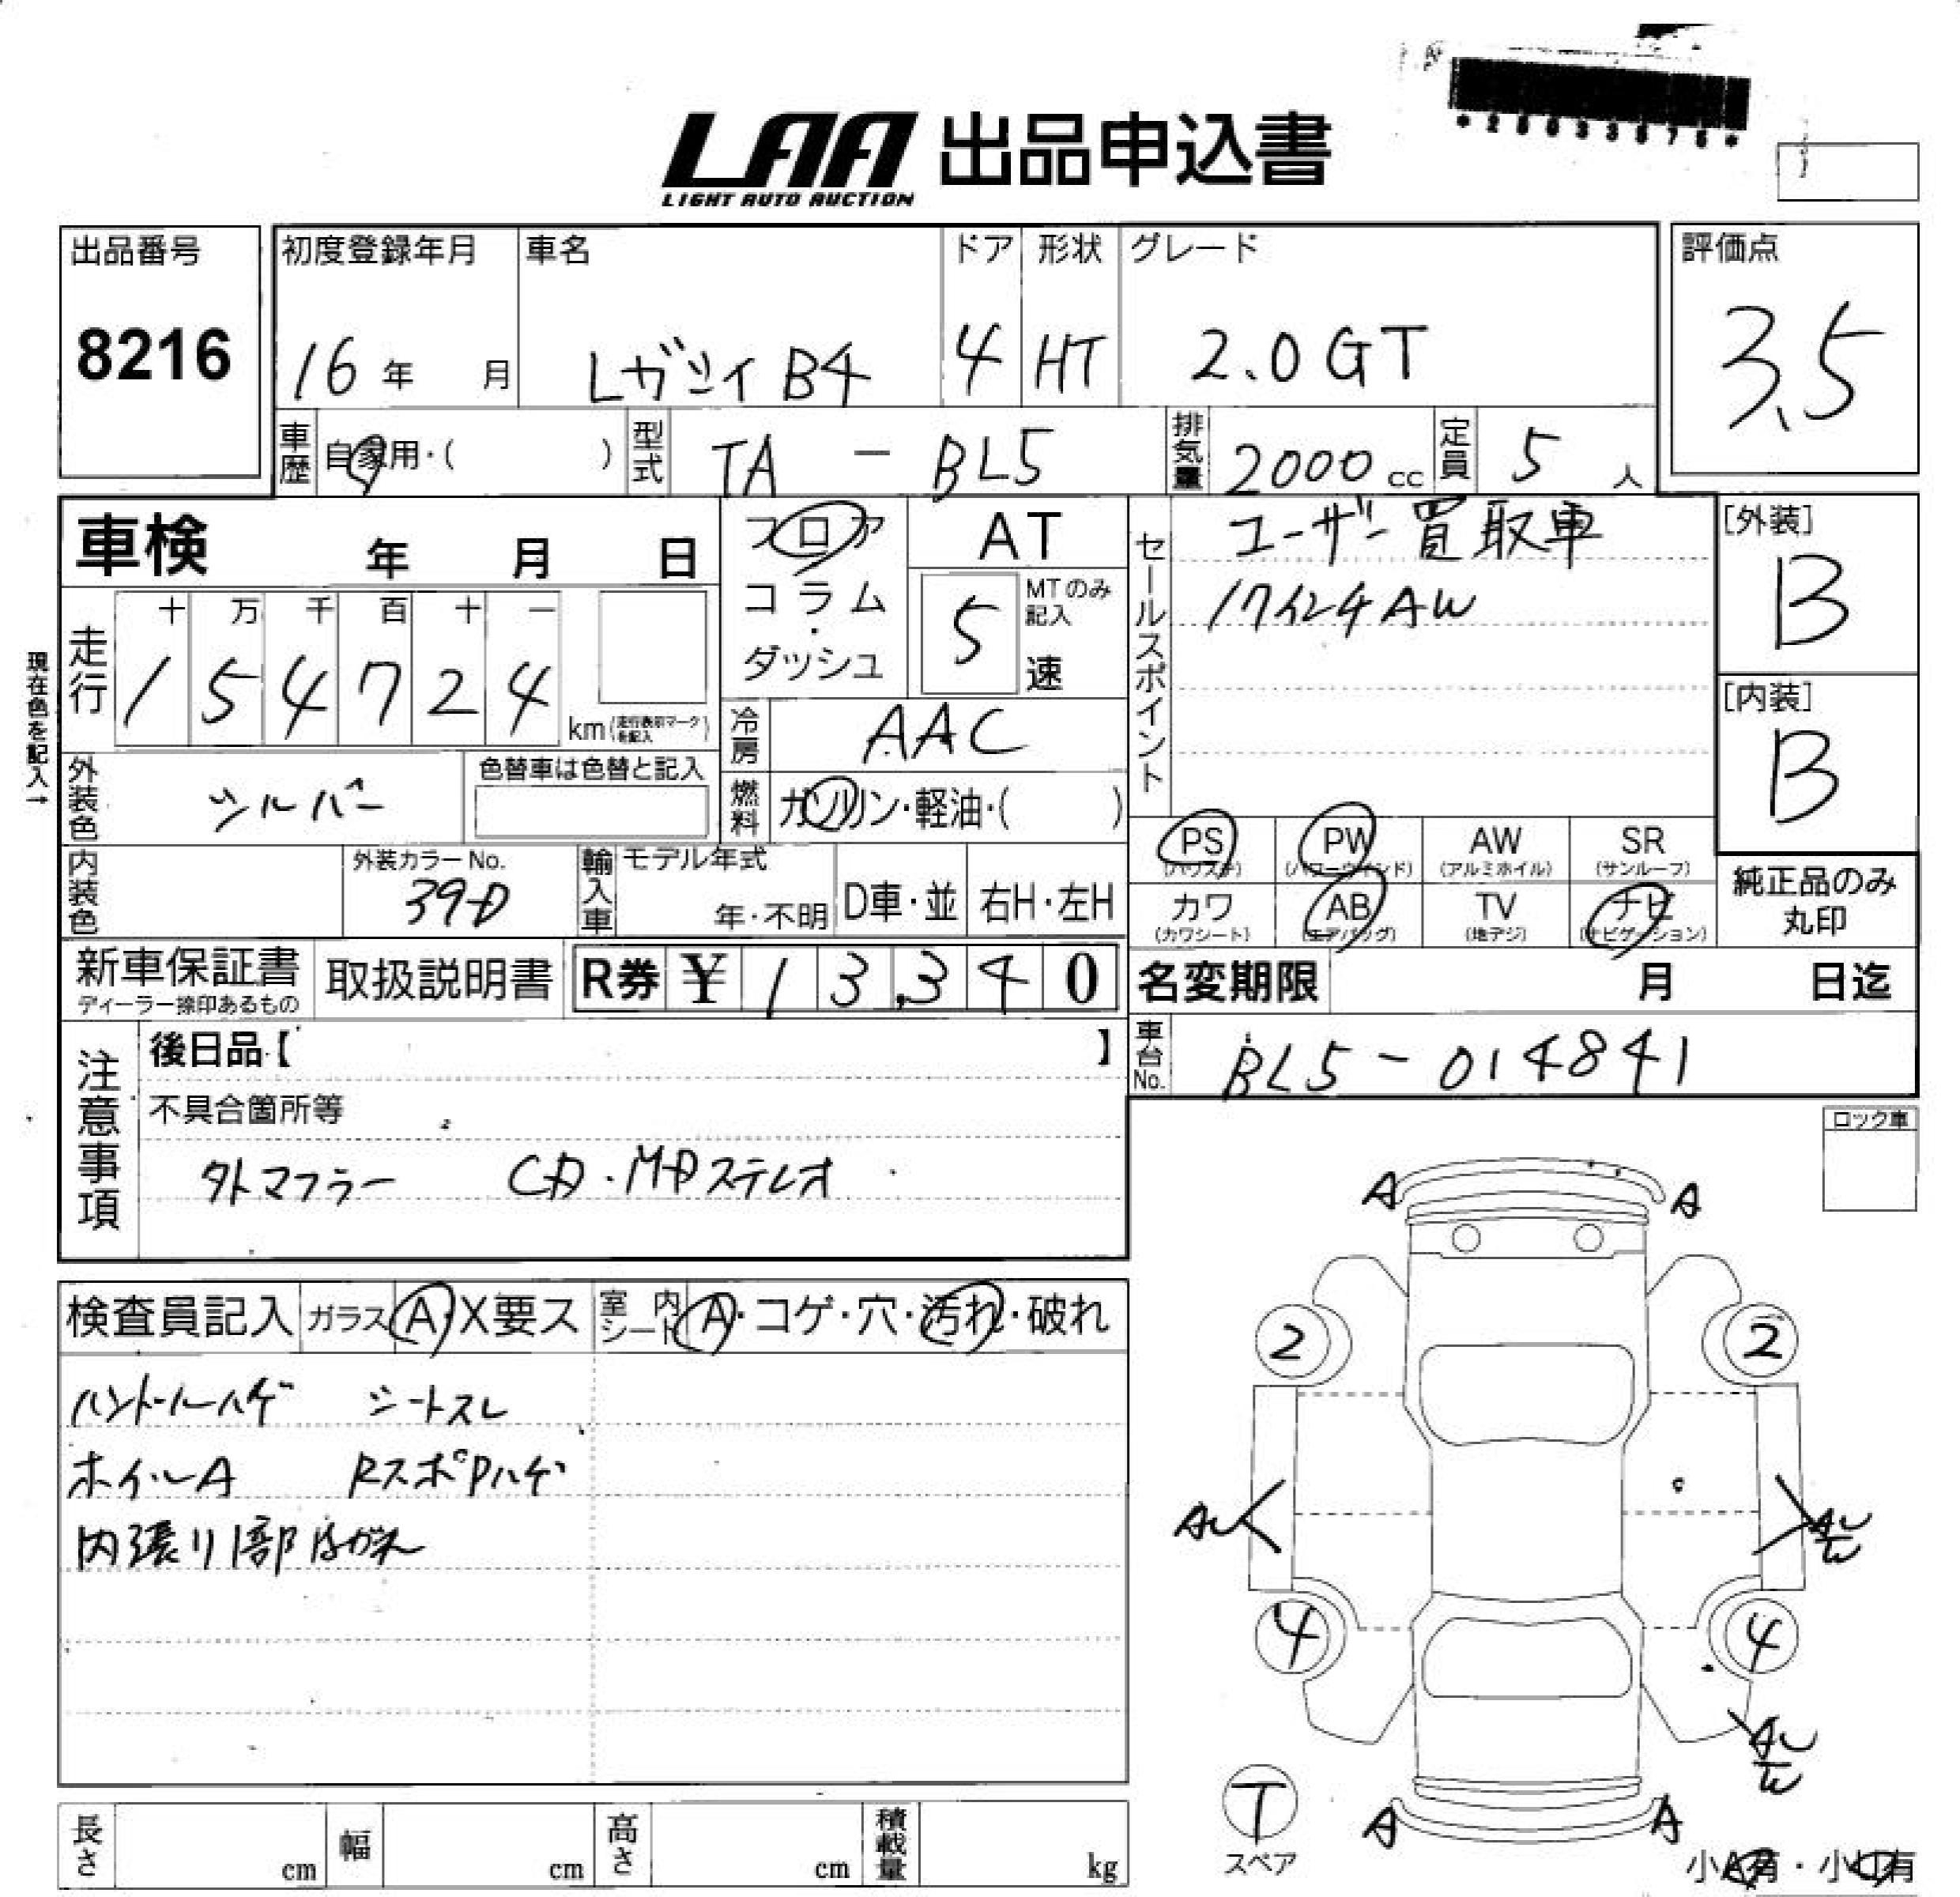 LAA 出品申込書
LIGHT AUTO AUCTION
出品番号
8216
初度登録年月
16年 月
車名
レガシィB4
ドア
4
形状
HT
グレード
2.0GT
評価点
3.5
車歴
自家用・( )
型式
TA - BL5
排気量
2000 cc
定員
5 人
車検 年 月 日
フロア
コラム・
ダッシュ
AT
5 速
MTのみ記入
セールスポイント
ユーザー買取車
17インチAW
[外装]
B
[内装]
B
現在色を記入→
走行
十 万 千 百 十 一
1 5 4 7 2 4
km(走行表示マークを記入)
冷房
AAC
燃料
ガソリン・軽油・( )
外装色
シルバー
色替車は色替と記入
内装色
外装カラーNo.
39D
輸入車
モデル年式
年・不明
D車・並
右H・左H
PS
(パワステ)
PW
(パワーウィンド)
AW
(アルミホイル)
SR
(サンルーフ)
カワ
(カワシート)
AB
(エアバッグ)
TV
(地デジ)
ナビ
(ナビゲーション)
純正品のみ
丸印
新車保証書
ディーラー捺印あるもの
取扱説明書
R券 ¥ 1 3,3 4 0
名変期限 月 日迄
車台No.
BL5-014841
注意事項
後日品【 】
不具合箇所等
外マフラー CD・MDステレオ
ロック車
検査員記入
ガラス A・X要ス
室内シート A・コゲ・穴・汚れ・破れ
ハンドルハゲ シートスレ
ホイルA RスポPハゲ
内張り1部はがれ
A A
2 2
AU AU
W
4 4
AU
W
T
スペア
A A
小A有・小U有
長さ cm
幅 cm
高さ cm
積載量 kg